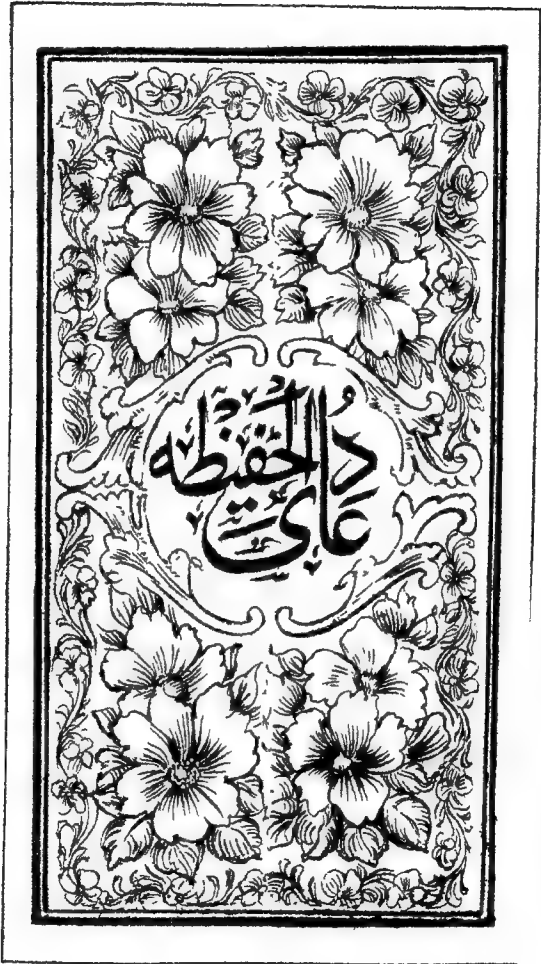 دُعای الحفیظه